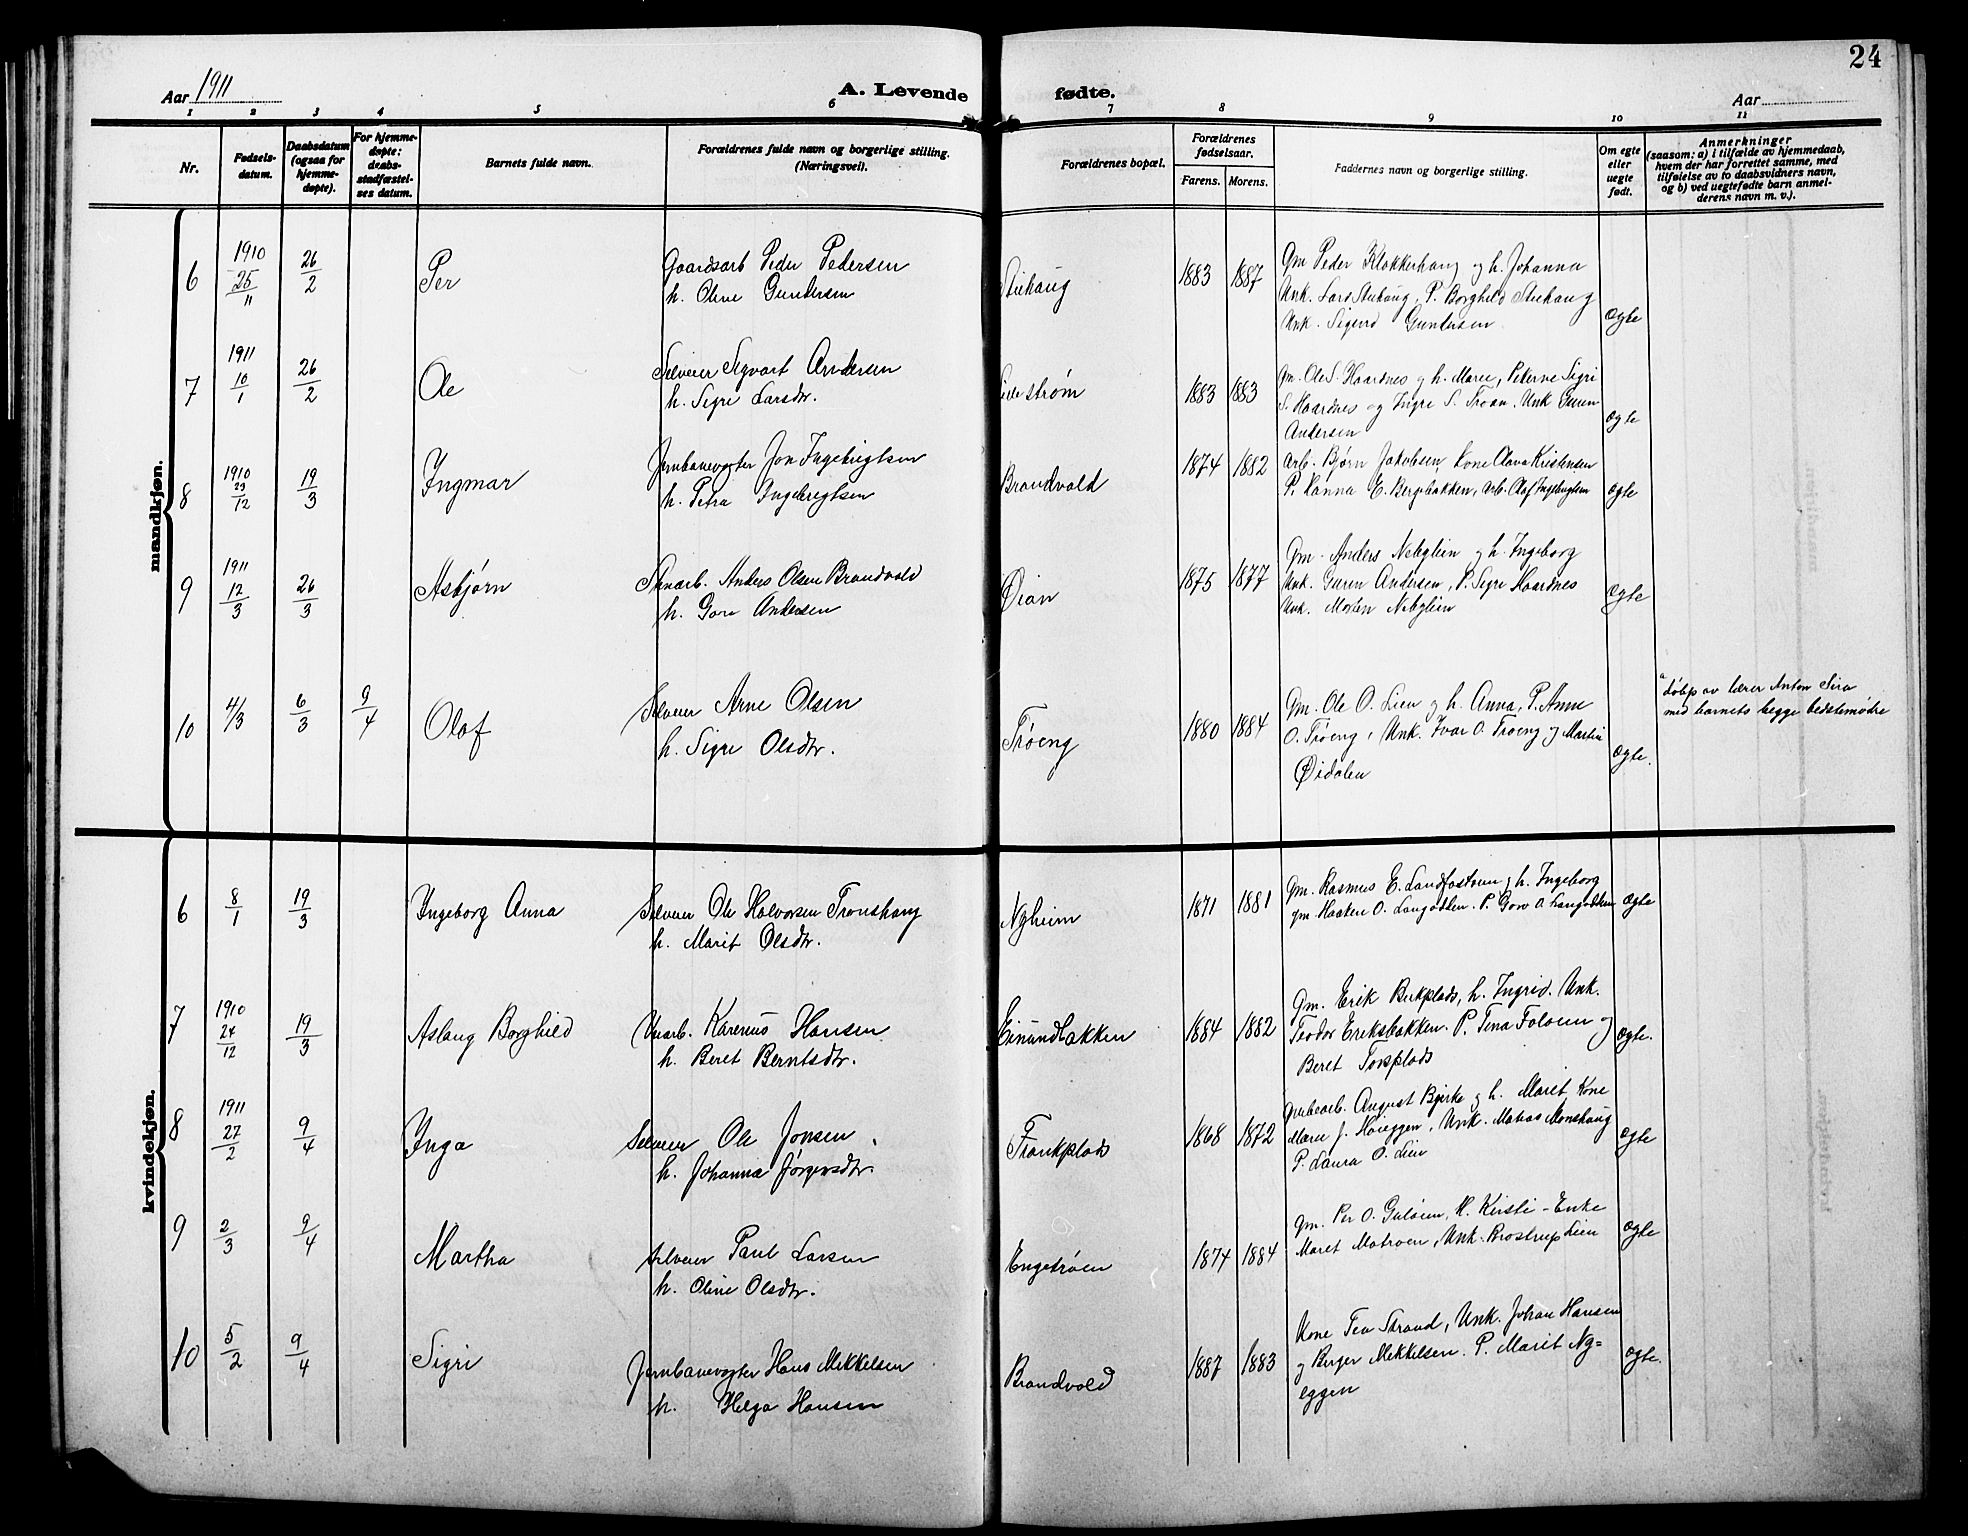 24
Aar 1911
A. Levende
fødte.
Aar
1 2 3 4 5 6 7 8 9 10 11
Nr.
Fødsels-
datum.
Daabsdatum
(ogsaa for
hjemme-
døpte).
For hjemme-
døpte:
daabs-
stadfæstel-
ses datum.
Barnets fulde navn.
Forældrenes fulde navn og borgerlige stilling.
(Næringsvei).
Forældrenes bopæl.
Forældrenes
fødselsaar.
Farens. Morens.
Faddernes navn og borgerlige stilling.
Om egte
eller
uegte
født.
Anmerkninger
(saasom: a) i tilfælde av hjemmedaab,
hvem der har forrettet samme, med
tilføielse av to daabsvidners navn,
og b) ved uegtefødte barn anmel-
derens navn m. v.).
mandkjøn.
6
1910
25/11
26/2
Per
Gaardsarb Peder Pedersen
h. Oline Gundersen
Stuhaug
1883 1887
Gm Peder Klokkerhaug og h. Johanna
Unk. Lars Stuhaug, P. Borghild Stuhaug
Unk. Sigurd Gundersen
Ægte
7
1911
10/1
26/2
Ole
Selveier Sigvart Andersen
h. Sigri Larsdtr.
strøm
1883 1883
Gm. Ole S. Haardnes og h. Marie, Pikerne Sigri
S. Haardnes og Ingri S. Troan. Unk Guren
Andersen
Ægte
8
1910
23/12
19/3
Ingmar
Jernbanevogter Jon Ingebrigtsen
h. Petra Ingebrigtsen
Brandvold
1874 1882
Arb. Bjørn Jakobsen, Kone Olava Kristensen
P. Hanna E. Bergsbakken, Arb. Olaf Ingebrigtsen
Ægte
9
1911
12/3
26/3
Asbjørn
Stenarb. Anders Olsen Brandvold
h. Goro Andersen
Øian
1875 1877
Gm. Anders Nebylien og h. Ingeborg
Unk. Guren Andersen, P. Sigri Haardnes
Unk. Morten Nebylien
Ægte
10
4/3
6/3
9/4
Olaf
Selveier Arne Olsen
h. Sigri Olsdtr.
Trøeng
1880 1884
Gm. Ole O. Lien og h. Anna, P. Anne
O. Trøeng, Unk. Ivar O. Trøeng og Martin
Øidalen
Ægte.
a døbt av lærer Anton Sira
med barnets begge bedstemødre
kvindekjøn.
6
8/1
19/3
Ingeborg Anna
Selveier Ole Halvorsen Tronshaug
h. Marit Olsdtr.
Nyheim
1871 1881
Gm. Rasmus E. Sandfostuen og h. Ingeborg
gm Haaken O. Langodden. P. Goro O. Langodden
Ægte
7
1910
24/12
19/3
Aslaug Borghild
Unarb. Karenus Hansen
h. Beret Berntsdtr.
Einundbakken
1884 1882
Gm. Erik Bukplads, h. Ingrid. Unk.
Teodor Eriksbakken. P. Tena Foloien og
Beret Torsplads
Ægte.
8
1911
27/2
9/4
Inga
Selveier Ole Jonsen
h. Johanna Jørgensdtr.
Frankplads
1868 1872
Grubearb. August Bjerke og h. Marit, Kone
Maren J. Høieggen, Unk. Matias Monshaug
P. Laura O. Lien
Ægte
9
2/3
9/4
Martha
Selveier Paul Larsen
h. Oline Olsdtr.
Engetrøen
1874 1884
Gm. Per O. Guløien, H. Kirsti – Enke
Maret Motroen, Unk. Brostrup Lien
Ægte
10
5/2
9/4
Sigri
Jernbanevogter Hans Mikkelsen
h. Helga Hansen
Brandvold
1887 1883
Kone Tea Strand, Unk. Johan Hansen
og Birger Mikkelsen. P. Marit Ny=
eggen
Ægte.